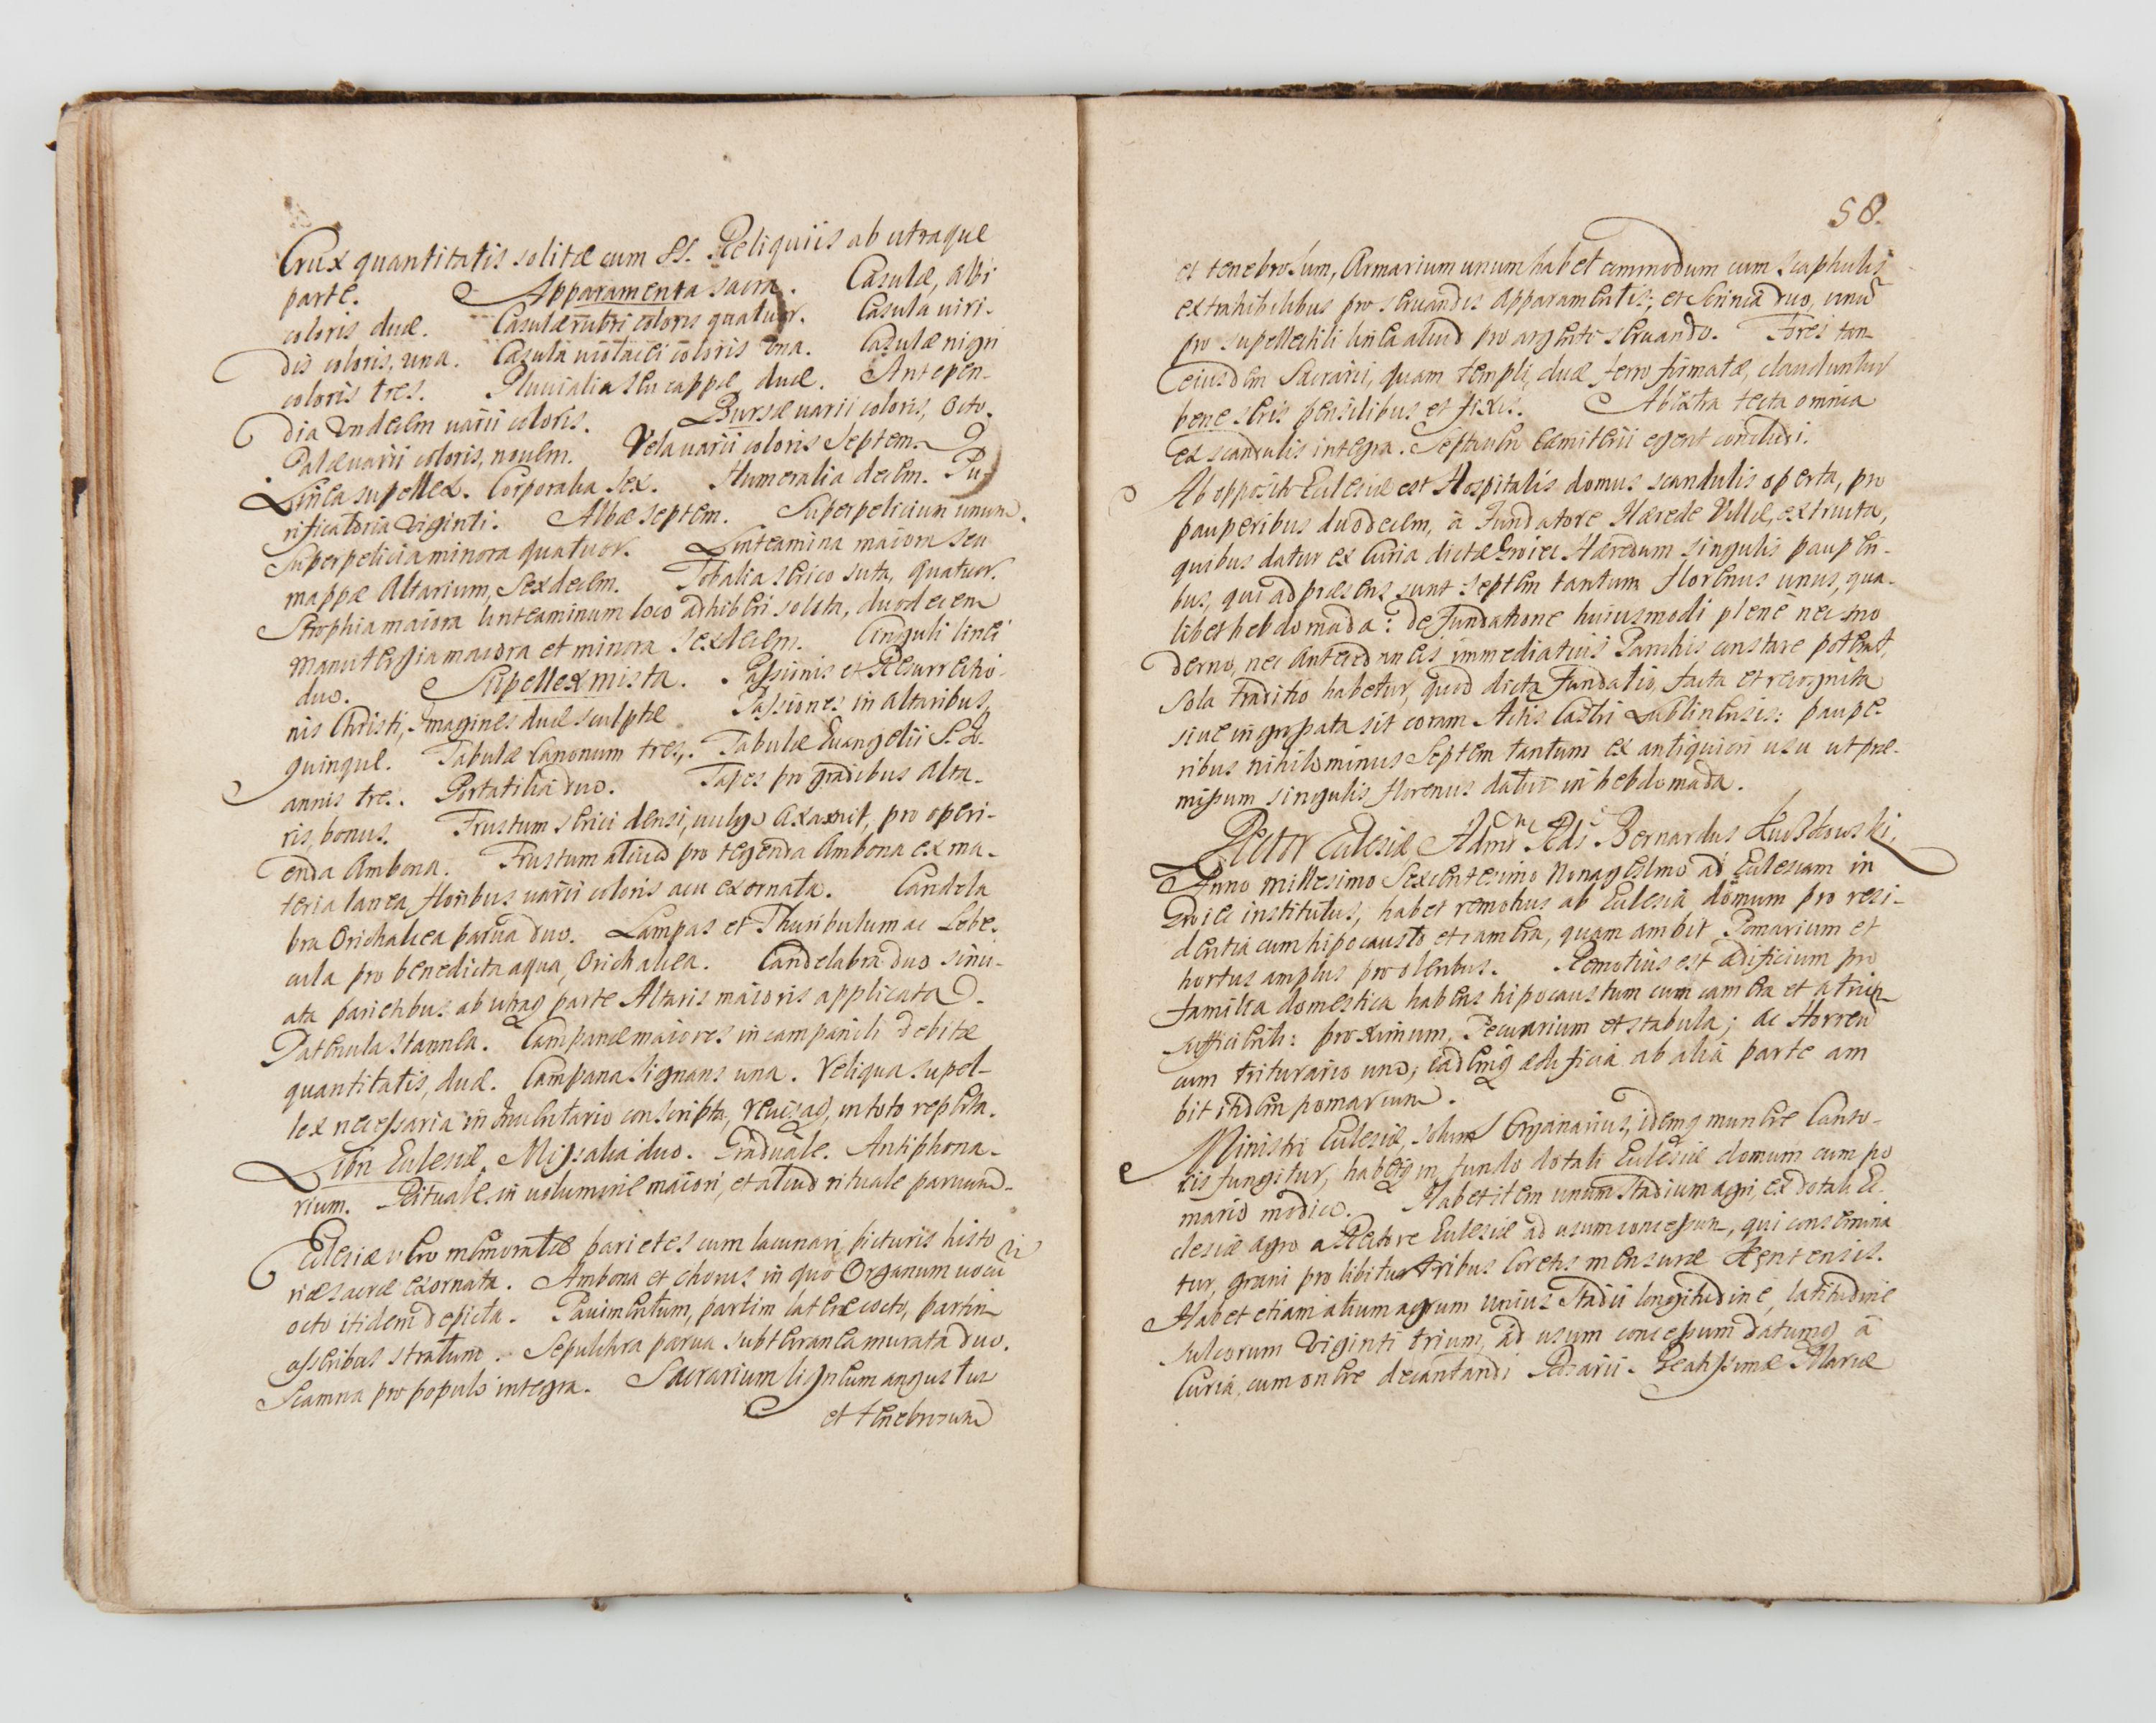 Crux quantitatis solitæ cum SS. Reliquiis ab utraque
parte. Apparamenta sacra. Casulæ, albi
coloris duæ. Casulæ rubri coloris quatuor. Casula viri-
dis coloris, una. Casula violacei coloris una. Casulæ nigri
coloris tres. Pluvialia seu cappæ duæ. Antepen-
dia undecem varii coloris. Bursæ varii coloris, octo.
Palæ varii coloris, novem. Vela varii coloris septem.
Linea supellex. Corporalia sex. Humeralia decem. Pu-
rificatoria viginti. Albæ septem. Superpelicium unum.
Superpelicia minora quatuor. Linteamina maiora seu
mappæ Altarium, sexdecem. Tobalia serico suta, quatuor.
Strophia maiora linteaminum loco adhiberi solita, duodecem
Manutergia maiora et minora sexdecem. Cinguli linei
duo. Supellex mista. Passionis et Resurrectio-
nis Christi, Imagines duæ sculptæ. Passiones in altaribus,
quinque. Tabulæ Canonum tres. Tabulæ Evangelii S. Io-
annis tres. Portatilia duo. Tapes pro gradibus Alta-
ris, bonus. Frustum serici densi, vulgo axamit, pro operi-
enda Ambona. Frustum aliud pro tegenda Ambona ex ma-
teria lanea floribus varii coloris acu exornata. Candela
bra Orichalcea parva duo. Lampas et Thuribulum ac Lebe-
cula pro benedicta aqua, Orichalcea. Candelabra duo sinu-
ata parietibus ab utraq parte Altaris maioris applicata.
Patenula stannea. Campanæ maiores in campanili debitæ
quantitatis, duæ. Campana signans una. Reliqua supel-
lex necessaria in Inventario conscripta, revisaq, in toto reperta.
Libri Eclesiæ. Missalia duo. Graduale. Antiphona-
rium. Rituale in volumine maiori, et aliud rituale parvum.
Eclesiæ vero memoratæ parietes cum lacunari picturis histo
riæ sacræ exornata. Ambona et chorus in quo Organum vocu
octo itidem depicta. Pavimentum, partim latere cocto, partim
asseribus stratum. Sepulchra parva subterranea murata duo.
Scamna pro populo integra. Sacrarium ligneum angustum
et tenebrosum
58.
et tenebrosum, Armarium unum habet commodum cum scaphulis
extrahibilibus pro servandis Apparamentis; et Scrinia duo, unu
pro supellectili linea aliud pro argento servando. Fores tam
eiusdem Sacrarii, quam templi, duæ ferro firmatæ, clauduntur
bene seris pensilibus et fixis. Ab extra tecta omnia
ex scandulis integra. Septa vero Cemiterii egent concludi.
Ab opposito Eclesiæ est Hospitalis domus scandulis operta, pro
pauperibus duodecem, à Fundatore Hærede Villæ, extructa,
quibus datur ex Curia dictæ Hæredum singulis paupen-
bus, qui ad præsens sunt septem tantum florenus unus, qua-
libet hebdomada: de Fundatione huiusmodi plene nec mo
derno, nec Antecedaneis immediativis Parochis constare poterat,
sola traditio habetur, quod dicta Fundatio, facta et recognita
sive ingrossata sit coram Actis Castri Lublinensis: paupe-
ribus nihilominus septem tantum ex antiquiori usu ut præ-
missum singulis florenus datur in hebdomada.
Rector Eclesiæ Admr Rds Bernardus
Anno millesimo sexcentesimo nonagesimo ad Eclesiam in
institutus, habet remotius ab Eclesia domum pro resi-
dentia cum hipocausto et camera, quam ambit Pomarium et
hortus amplus pro oleribus. Remotius est ædificium pro
familia domestica habens hipocaustum cum camera et atrio
sufficienti: proximum, Pecuarium et stabula; ac Horreu
cum triturario uno; eademq ædificia ab alia parte am
bit itidem pomarium.
Ministri Eclesiæ, solum Organarius, idemq munere Canto-
ris fungitur, habetq in fundo dotali Eclesiæ domum cum po
mario modico. Habet item unum stadium agri, ex dotali Ec-
clesiæ agro a Rectore Eclesiæ ad usum concessum, qui consemina
tur, grani pro libitu tribus Coretis mensuræ
Habet etiam alium agrum unius stadii longitudine, latitudine
sulcorum viginti trium, ad usum concessum datumq à
Curia, cum onere decantandi Rosarii Beatissimæ Mariæ